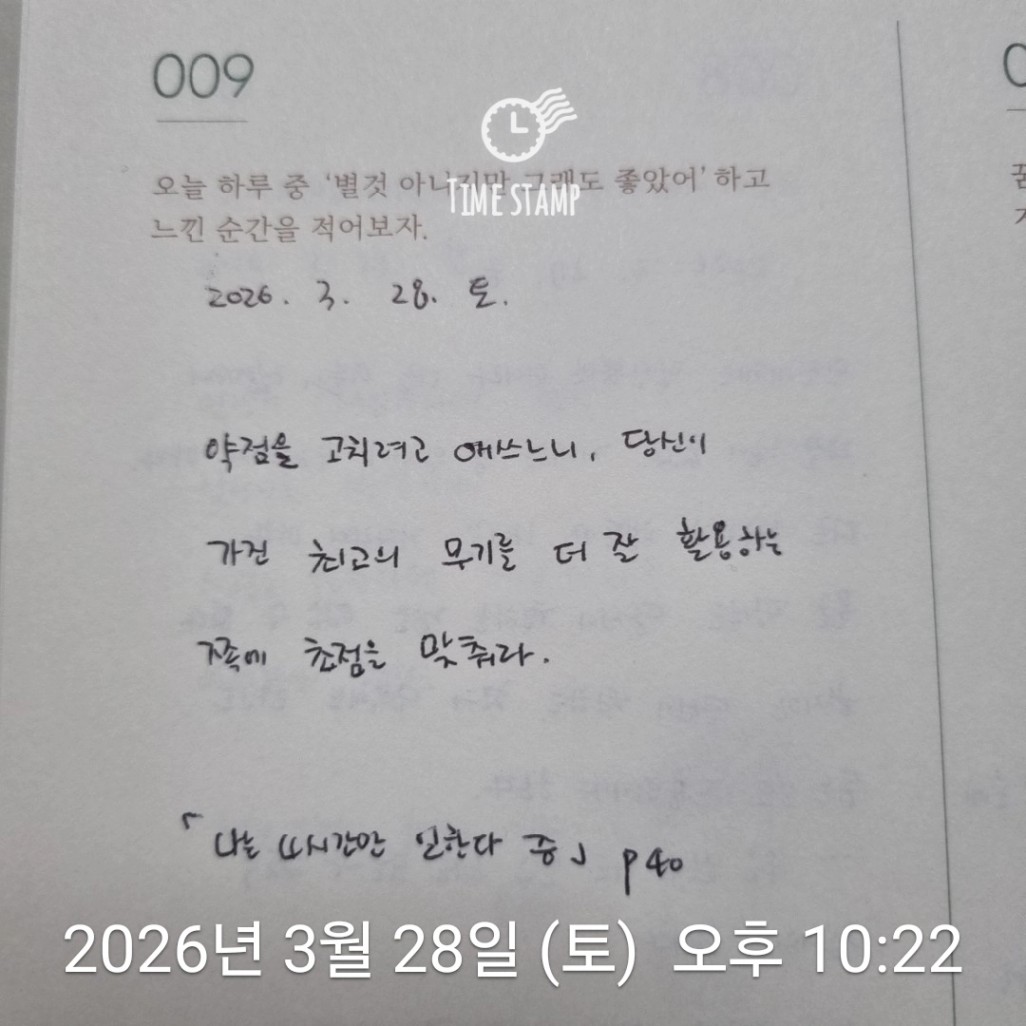 009
TIME STAMP
오늘 하루 중 '별것 아니지만 그래도 좋았어' 하고
느낀 순간을 적어보자.
2026. 3. 28. 토.
약점을 고치려고 애쓰느니, 당신이
가진 최고의 무기를 더 잘 활용하는
쪽에 초점을 맞춰라.
「나는 4시간만 일한다 중」 p40
2026년 3월 28일 (토) 오후 10:22